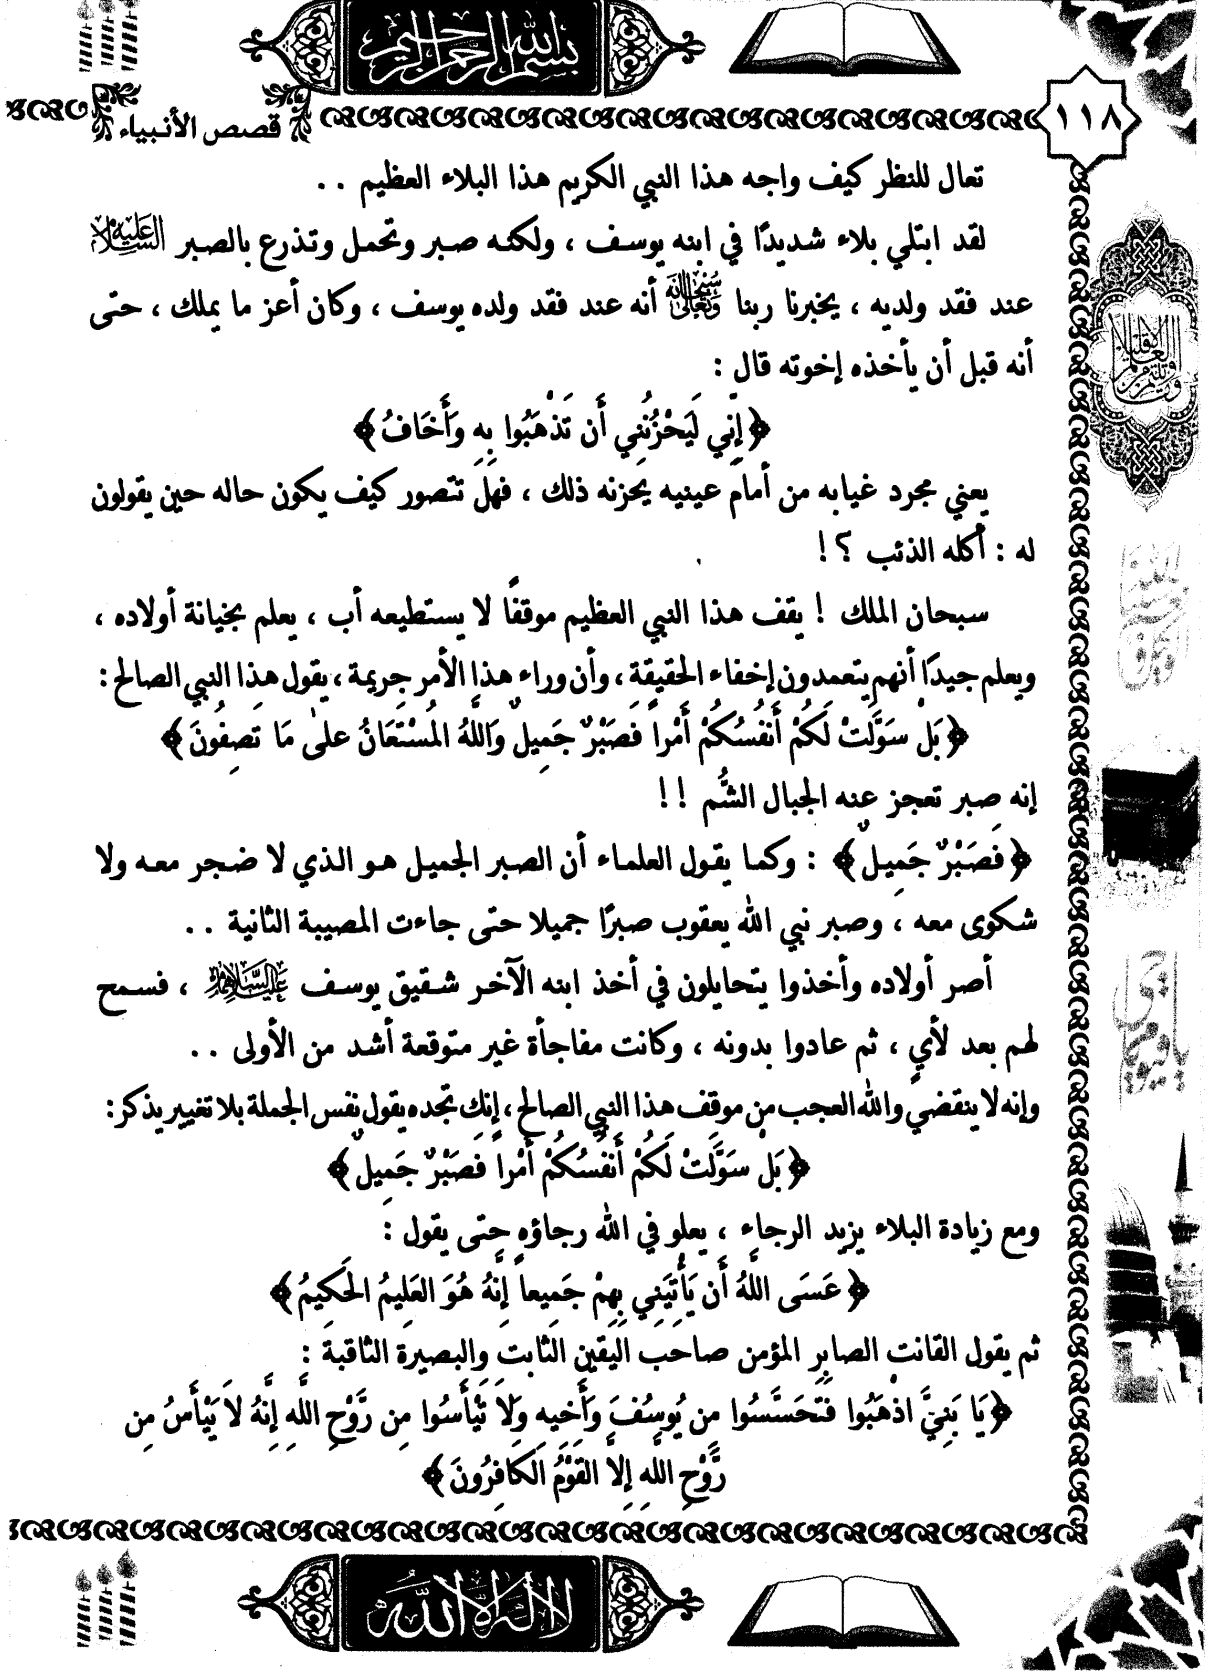 بسم الله الرحمن الرحيم
١١٨
قصص الأنبياء
تعال للنظر كيف واجه هذا النبي الكريم هذا البلاء العظيم . .
لقد ابتلي بلاء شديدًا في ابنه يوسف ، ولكنه صبر وتحمل وتذرع بالصبر عليه السلام
عند فقد ولديه ، يخبرنا ربنا سبحانه وتعالى أنه عند فقد ولده يوسف ، وكان أعز ما يملك ، حتى
أنه قبل أن يأخذه إخوته قال :
﴿ إِنِّي لَيَحْزُنُنِي أَن تَذْهَبُوا بِهِ وَأَخَافُ ﴾
يعني مجرد غيابه من أمام عينيه يحزنه ذلك ، فهل تتصور كيف يكون حاله حين يقولون
له : أكله الذئب ؟ !
سبحان الملك ! يقف هذا النبي العظيم موقفًا لا يستطيعه أب ، يعلم بخيانة أولاده ،
ويعلم جيدًا أنهم يتعمدون إخفاء الحقيقة ، وأن وراء هذا الأمر جريمة ، يقول هذا النبي الصالح :
﴿ بَلْ سَوَّلَتْ لَكُمْ أَنفُسُكُمْ أَمْراً فَصَبْرٌ جَمِيلٌ وَاللَّهُ المُسْتَعَانُ عَلَىٰ مَا تَصِفُونَ ﴾
إنه صبر تعجز عنه الجبال الشُّم ! !
﴿ فَصَبْرٌ جَمِيلٌ ﴾ : وكما يقول العلماء أن الصبر الجميل هو الذي لا ضجر معه ولا
شكوى معه ، وصبر نبي الله يعقوب صبرًا جميلا حتى جاءت المصيبة الثانية . .
أصر أولاده وأخذوا يتحايلون في أخذ ابنه الآخر شقيق يوسف عليهما السلام ، فسمح
لهم بعد لأيٍ ، ثم عادوا بدونه ، وكانت مفاجأة غير متوقعة أشد من الأولى . .
وإنه لا ينقضي والله العجب من موقف هذا النبي الصالح ، إنك تجده يقول نفس الجملة بلا تغيير يذكر :
﴿ بَلْ سَوَّلَتْ لَكُمْ أَنفُسُكُمْ أَمْراً فَصَبْرٌ جَمِيلٌ ﴾
ومع زيادة البلاء يزيد الرجاء ، يعلو في الله رجاؤه حتى يقول :
﴿ عَسَى اللَّهُ أَن يَأْتِيَنِي بِهِمْ جَمِيعاً إِنَّهُ هُوَ العَلِيمُ الحَكِيمُ ﴾
ثم يقول القانت الصابر المؤمن صاحب اليقين الثابت والبصيرة الثاقبة :
﴿ يَا بَنِيَّ اذْهَبُوا فَتَحَسَّسُوا مِن يُوسُفَ وَأَخِيهِ وَلاَ تَيْأَسُوا مِن رَّوْحِ اللَّهِ إِنَّهُ لاَ يَيْأَسُ مِن
رَّوْحِ اللَّهِ إِلاَّ القَوْمُ الكَافِرُونَ ﴾
لا إله إلا الله